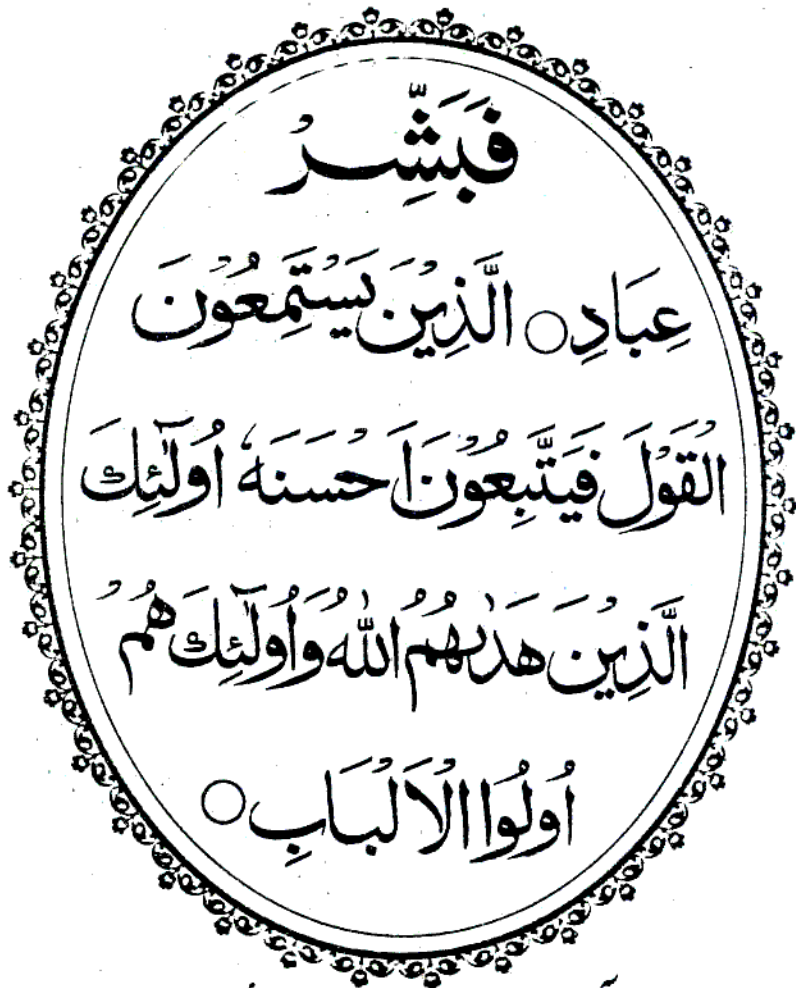 فَبَشِّرْ
عِبَادِ○ الَّذِيْنَ يَسْتَمِعُوْنَ
الْقَوْلَ فَيَتَّبِعُوْنَ اَحْسَنَهٗ اُولٰٓئِكَ
الَّذِيْنَ هَدٰىهُمُ اللّٰهُ وَاُولٰٓئِكَ هُمْ
اُولُوا الْاَلْبَابِ○